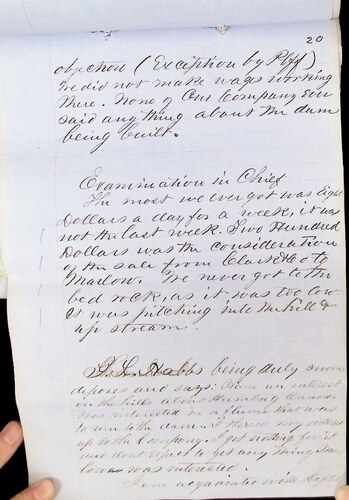 20
objection (Exception by Plff)
We did not make wages working
there. None of Our Company ever
said anything about the dam
being built.
Examination in Chief
The most we ever got was Eight
Dollars a day for a week, it was
not the last week. Two Hundred
Dollars was the consideration
of the sale from Clark & Co to
Marlow. We never got to the
bed rock, as it was too low
It was pitching into the hill &
up stream.
Hobbs being duly sworn
deposes and says. I have an interest
in the hills above Humbug Canon
was interested in a flume that was
to run to the dam. I threw my interest
up to the Company. I got nothing for it
and dont expect to get any thing
was interested.
I am acquainted with